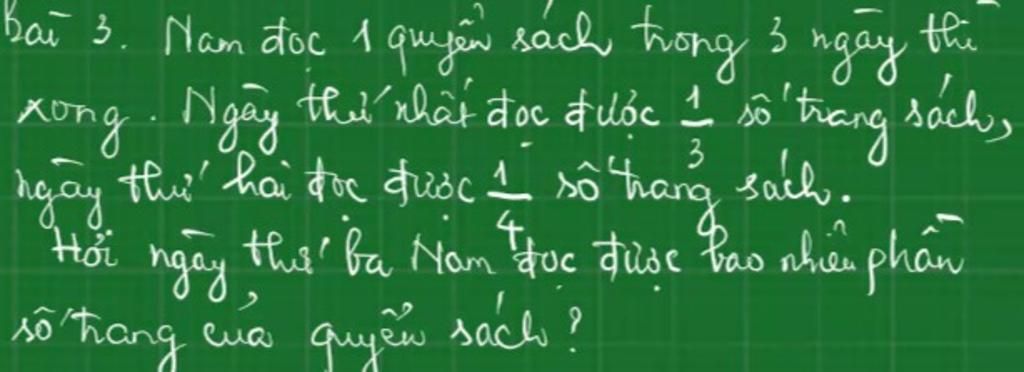 Bài 3. Nam đọc 1 quyển sách trong 3 ngày thì
xong. Ngày thứ nhất đọc được 1/3 số trang sách,
ngày thứ hai đọc được 1/4 số trang sách.
Hỏi ngày thứ ba Nam đọc được bao nhiêu phần
số trang của quyển sách?